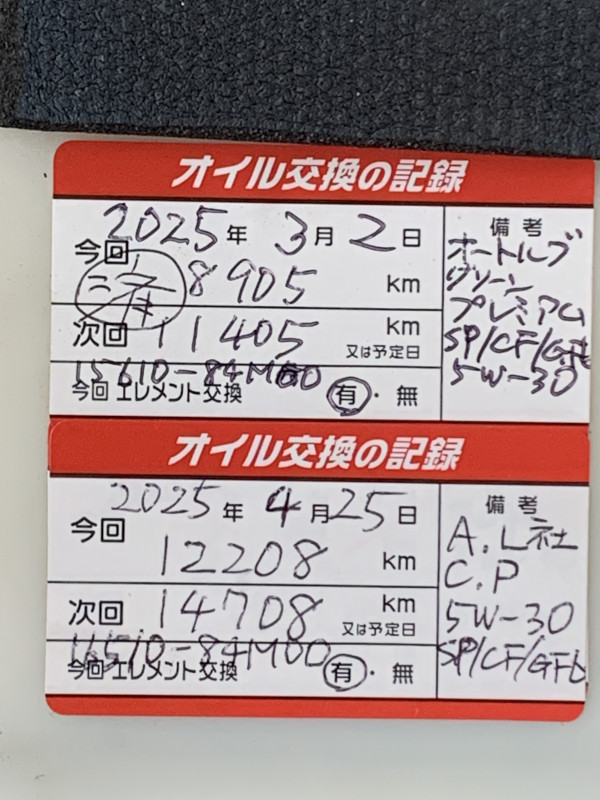 オイル交換の記録
2025年 3月 2日
今回 済 8905 km
次回 11405 km
又は予定日
15610-84M00
今回 エレメント交換 有・無
備考
オートルブ
グリーン
プレミアム
SP/CF/GF6
5W-30
オイル交換の記録
2025年 4月25日
今回
12208 km
次回 14708 km
又は予定日
16510-84M00
今回 エレメント交換 有・無
備考
A.L社
C.P
5W-30
SP/CF/GF6